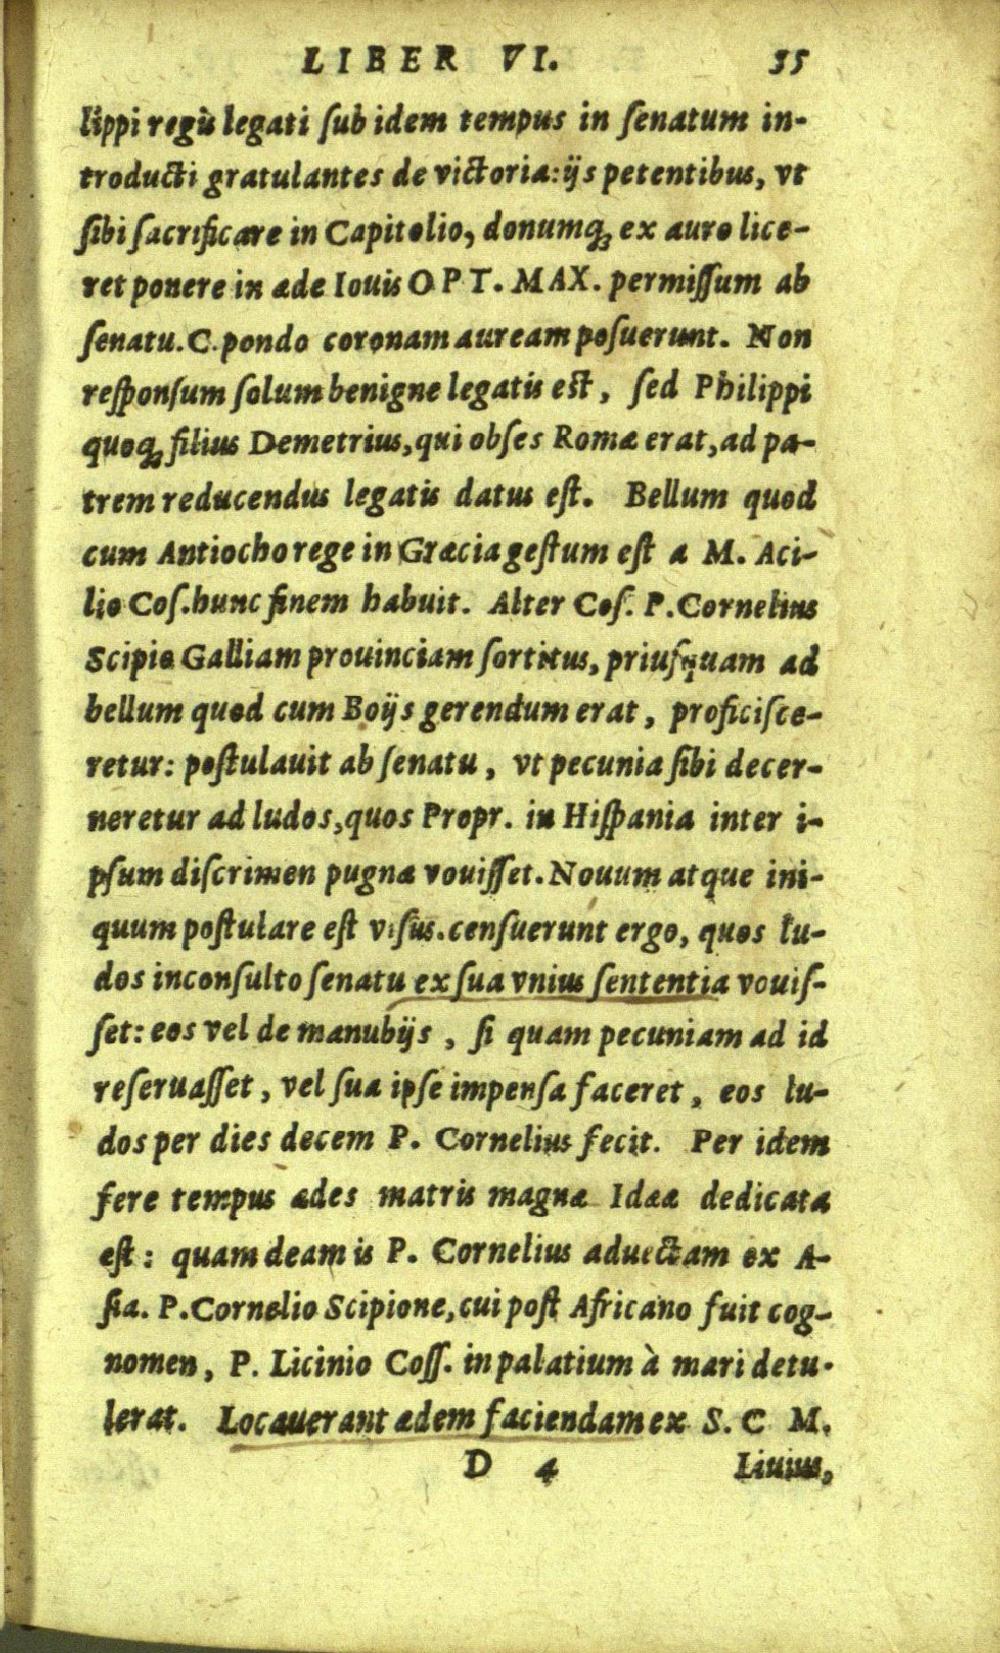 LIBER VI. 35
lippi regis legati ſub idem tempus in ſenatum in-
troducti gratulantes de victoria: ijs petentibus, vt
ſibi ſacrificare in Capitolio, donumq; ex auro lice-
ret ponere in æde Iouis OPT. MAX. permiſſum ab
ſenatu. C. pondo coronam auream poſuerunt. Non
reſponſum ſolum benigne legatis eſt, ſed Philippi
quoq; filius Demetrius, qui obſes Romæ erat, ad pa-
trem reducendus legatis datus eſt. Bellum quod
cum Antiocho rege in Græcia geſtum eſt a M. Aci-
lio Coſ. hunc finem habuit. Alter Coſ. P. Cornelius
Scipio Galliam prouinciam ſortitus, priuſquam ad
bellum quod cum Boijs gerendum erat, proficiſce-
retur: poſtulauit ab ſenatu, vt pecunia ſibi decer-
neretur ad ludos, quos Propr. in Hiſpania inter i-
pſum diſcrimen pugnæ vouiſſet. Nouum atque ini-
quum poſtulare eſt viſus. cenſuerunt ergo, quos lu-
dos inconſulto ſenatu ex ſua vnius ſententia vouiſ-
ſet: eos vel de manubijs, ſi quam pecuniam ad id
reſeruaſſet, vel ſua ipſe impenſa faceret, eos lu-
dos per dies decem P. Cornelius fecit. Per idem
fere tempus ædes matris magnæ Idææ dedicata
eſt: quam deam is P. Cornelius aduectam ex A-
ſia. P. Cornelio Scipione, cui poſt Africano fuit cog-
nomen, P. Licinio Coſſ. in palatium à mari detu-
lerat. Locauerant ædem faciendam ex S. C M.
D 4 Liuius,